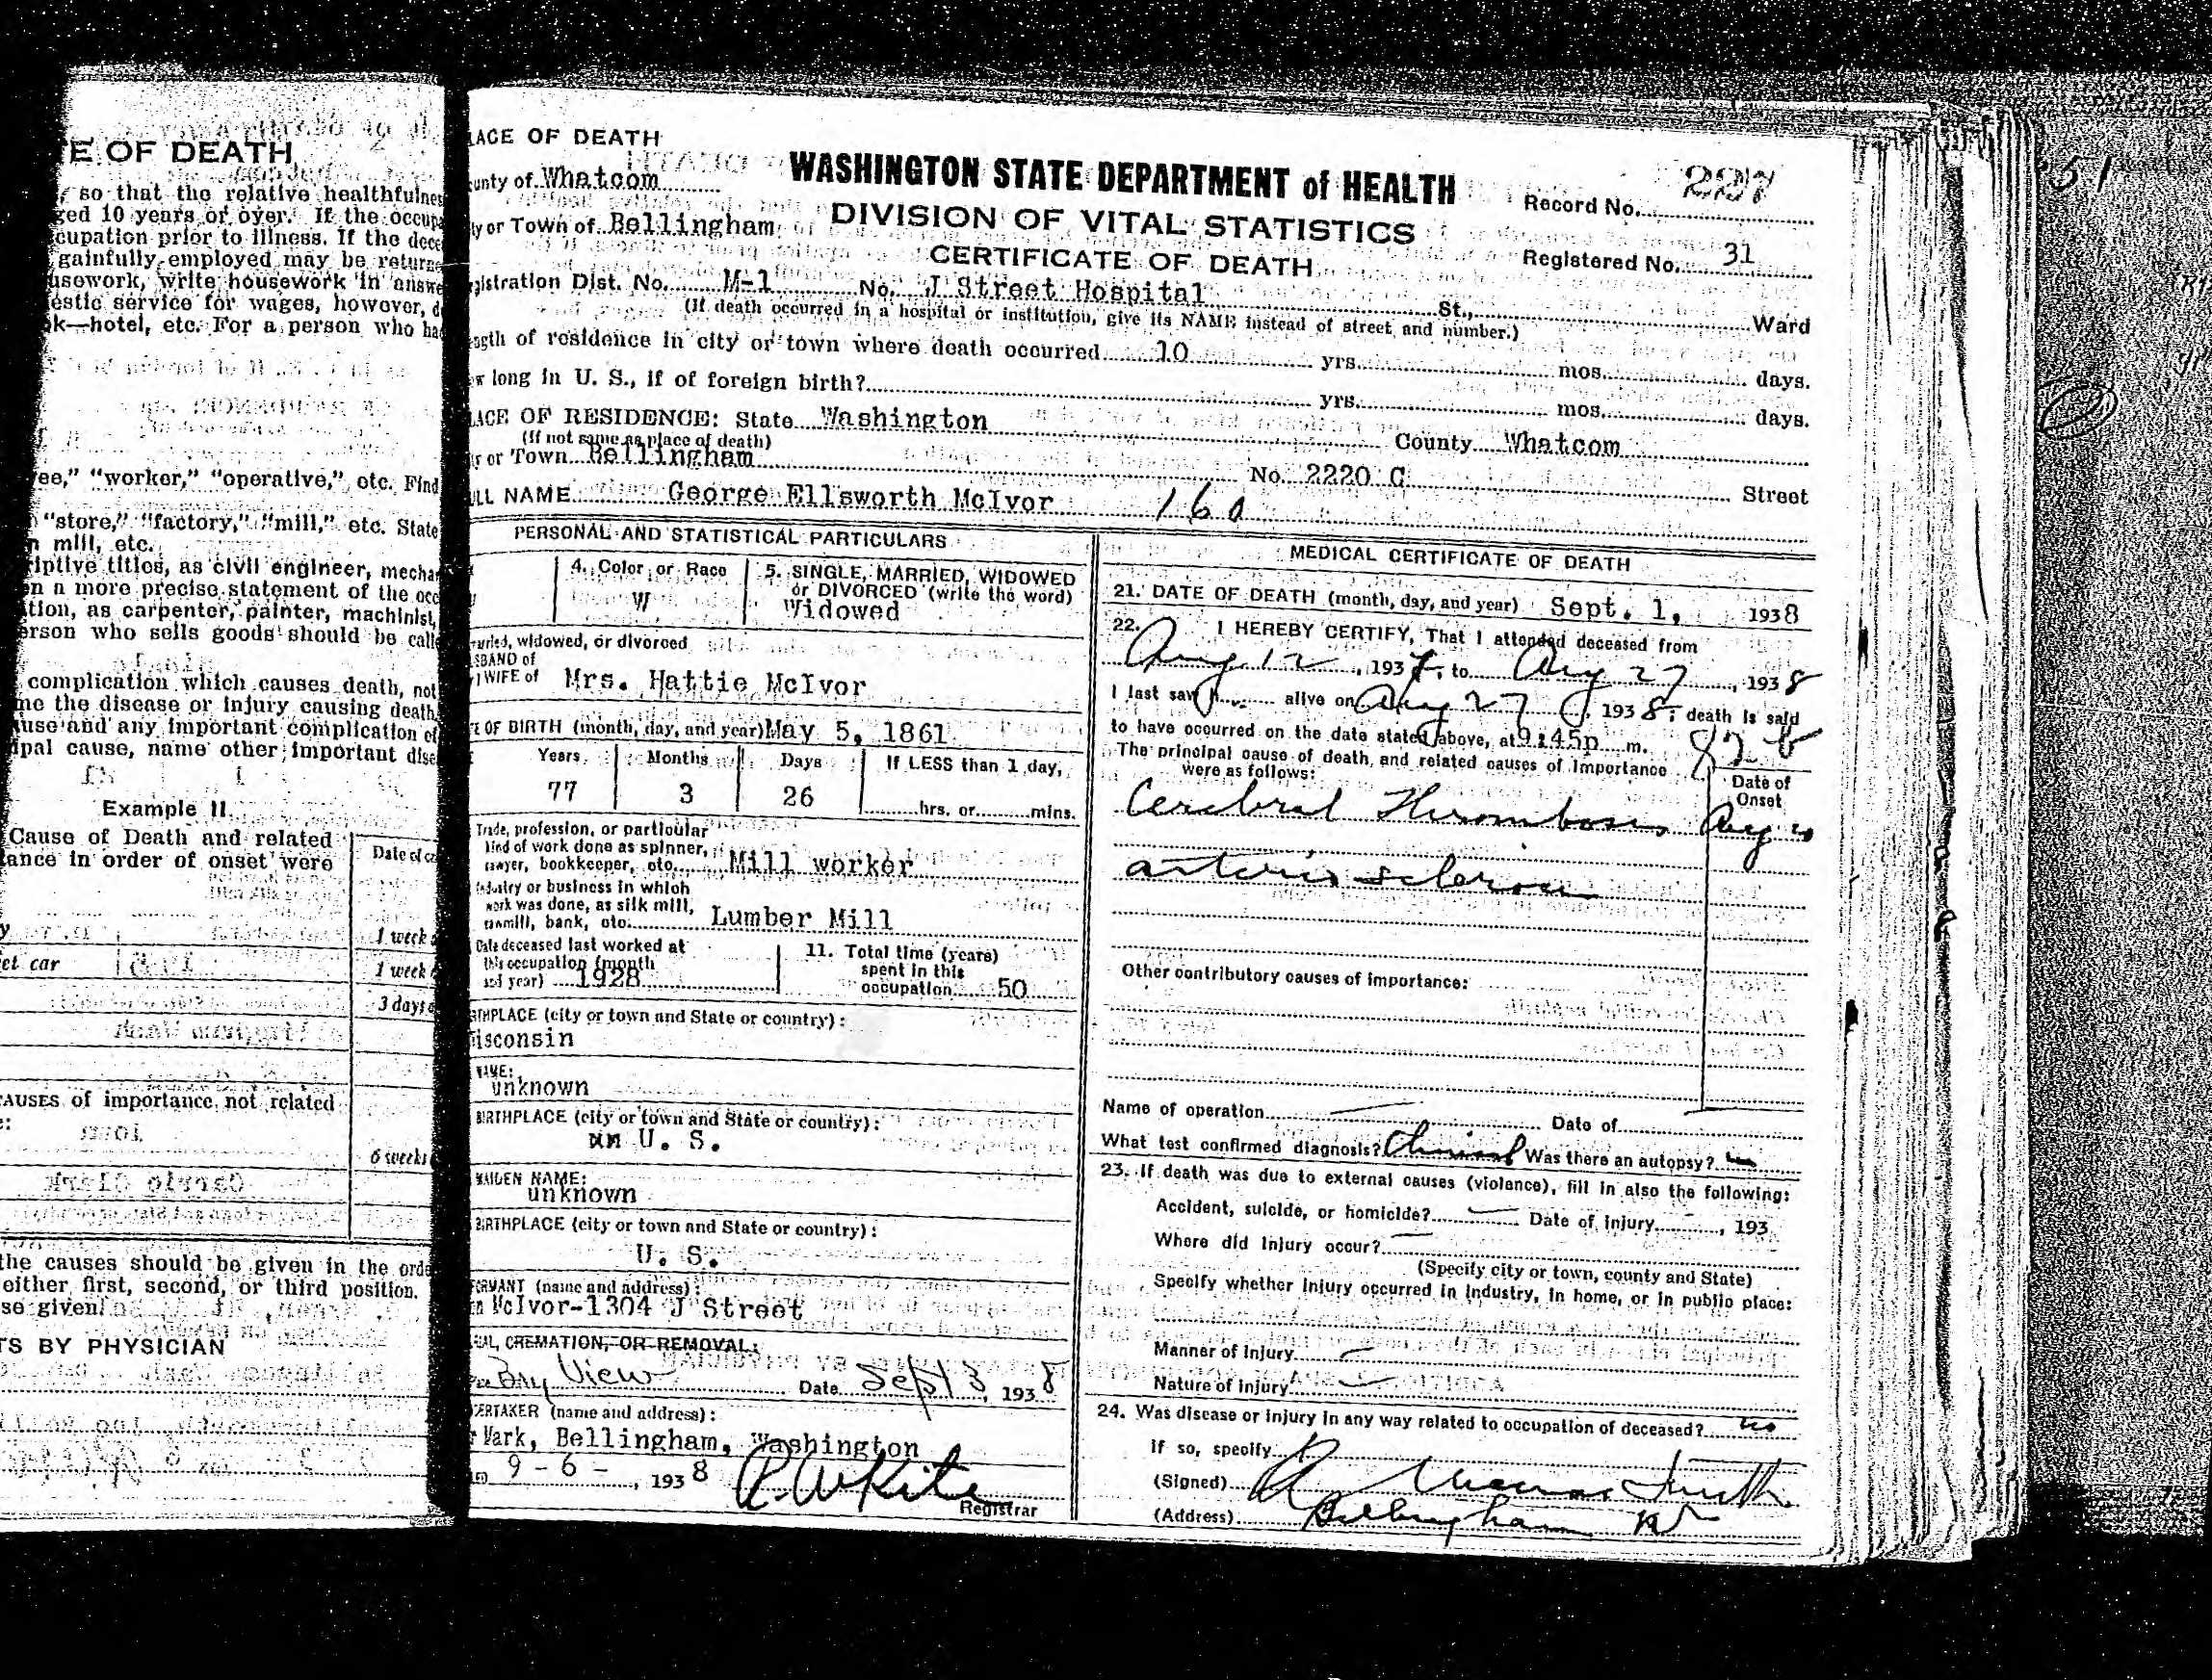 E OF DEATH
so that the relative healthfulnes
ged 10 years or over. If the occupa
cupation prior to illness. If the dece
gainfully employed may be returne
usework, write housework in answe
estic service for wages, however, d
k—hotel, etc. For a person who ha
ee," "worker," "operative," etc. Find
"store," "factory," "mill," etc. State
n mill, etc.
riptive titles, as civil engineer, mechan
n a more precise statement of the occ
tion, as carpenter, painter, machinist,
erson who sells goods should be calle
complication which causes death, not
ne the disease or injury causing death,
use and any important complication of
ipal cause, name other important dise
Example II
Cause of Death and related
tance in order of onset were
Date of
1 week
et car
1 week
3 days
AUSES of importance not related
6 weeks
the causes should be given in the orde
either first, second, or third position.
se given
TS BY PHYSICIAN
LACE OF DEATH
unty of Whatcom
WASHINGTON STATE DEPARTMENT of HEALTH
Record No. 227
y or Town of Bellingham
DIVISION OF VITAL STATISTICS
CERTIFICATE OF DEATH
Registered No. 31
gistration Dist. No. M-1 No. J Street Hospital St., Ward
(If death occurred in a hospital or institution, give its NAME instead of street and number.)
ngth of residence in city or town where death occurred 10 yrs. mos. days.
w long in U. S., if of foreign birth? yrs. mos. days.
LACE OF RESIDENCE: State Washington County Whatcom
(If not same as place of death)
y or Town Bellingham No. 2220 C Street
ULL NAME George Ellsworth McIvor 160
PERSONAL AND STATISTICAL PARTICULARS
4. Color or Race
W
5. SINGLE, MARRIED, WIDOWED
or DIVORCED (write the word)
Widowed
rried, widowed, or divorced
SBAND of
) WIFE of Mrs. Hattie McIvor
E OF BIRTH (month, day, and year) May 5, 1861
Years Months Days If LESS than 1 day,
77 3 26 hrs. or mins.
Trade, profession, or particular
kind of work done as spinner,
sawyer, bookkeeper, etc. Mill worker
Industry or business in which
work was done, as silk mill,
sawmill, bank, etc. Lumber Mill
Date deceased last worked at
this occupation (month
and year) 1928
11. Total time (years)
spent in this
occupation 50
RTHPLACE (city or town and State or country):
isconsin
NAME:
unknown
BIRTHPLACE (city or town and State or country):
U. S.
MAIDEN NAME:
unknown
BIRTHPLACE (city or town and State or country):
U. S.
FORMANT (name and address):
McIvor-1304 J Street
IAL, CREMATION, OR REMOVAL:
Bay View Date Sept 3, 1938
DERTAKER (name and address):
r Mark, Bellingham, Washington
9-6-, 1938
Registrar
MEDICAL CERTIFICATE OF DEATH
21. DATE OF DEATH (month, day, and year) Sept. 1, 1938
22. I HEREBY CERTIFY, That I attended deceased from
Aug 12, 1937, to Aug 27, 1938
I last saw h alive on Aug 27, 1938; death is said
to have occurred on the date stated above, at 9:45p m.
The principal cause of death and related causes of importance
were as follows:
82 b
Date of
Onset
Cerebral Thrombosis Aug
arterio sclerosis
Other contributory causes of importance:
Name of operation Date of
What test confirmed diagnosis? Clinical Was there an autopsy? no
23. If death was due to external causes (violence), fill in also the following:
Accident, suicide, or homicide? Date of injury , 193
Where did injury occur?
(Specify city or town, county and State)
Specify whether injury occurred in industry, in home, or in public place:
Manner of injury
Nature of injury
24. Was disease or injury in any way related to occupation of deceased? no
If so, specify
(Signed) Smith
(Address) Bellingham W
51